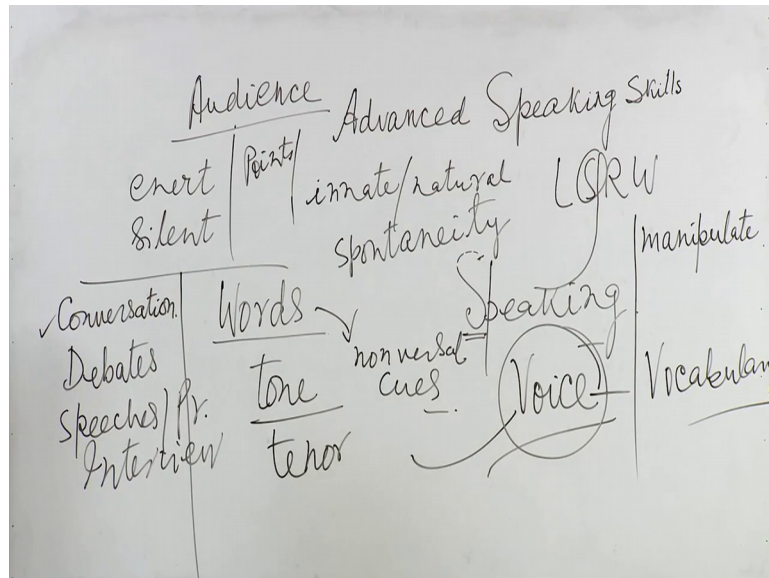 Audience
Advanced Speaking Skills
enert
silent
Points
innate/natural
spontaneity
LSRW
manipulate
✓Conversation.
Debates
Speeches/Pr.
Interview
Words
tone
tenor
nonversal
cues
Speaking
Voice
Vocabulary